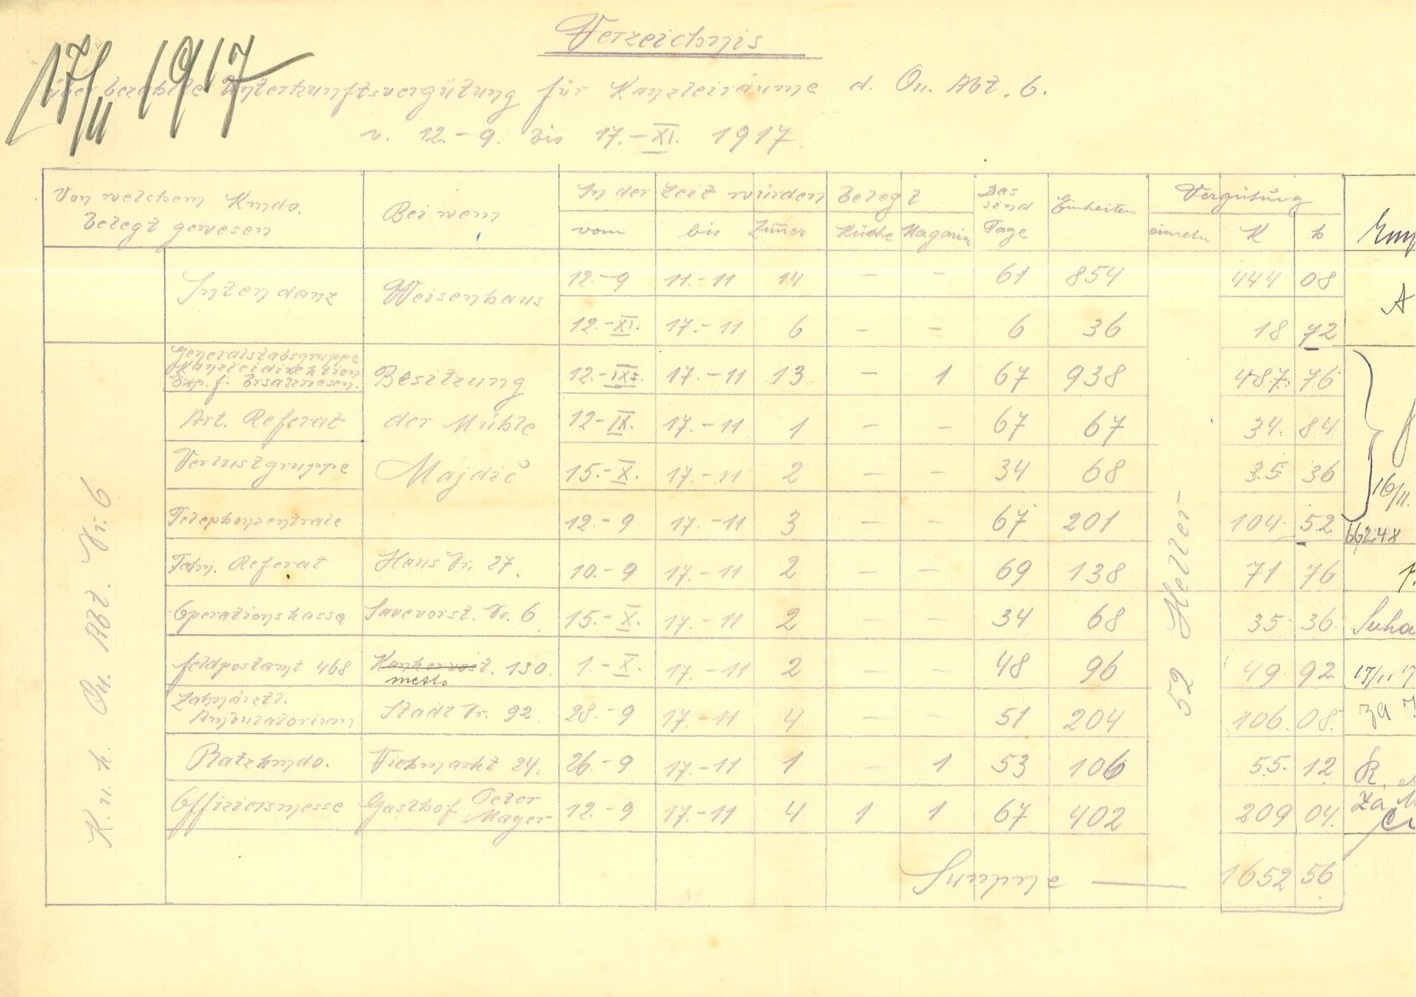 17/II 1917
Verzeichnis
über bezahlte Unterkunftsvergütung für Kanzleiräume d. Qu. Abt. 6.
v. 12.-9. bis 17.-XI. 1917.
Von welchem Kmdo. Belegt gewesen | Bei wem | In der Zeit wurden Belegt | Das sind Tage | Einheiten | Vergütung
vom | bis | Zimmer | Küche | Magazin | einzeln | K | h
Intendanz | Weisenhaus | 12.-9 | 11.-11 | 14 | - | - | 61 | 854 | 444 08 | A
12.-XI. | 17.-11 | 6 | - | - | 6 | 36 | 18 72
Generalstabsgruppe
Kanzleidirektion
Exp. f. Ersatzwesen. | Besitzung | 12.-IX. | 17.-11 | 13 | - | 1 | 67 | 938 | 487. 76
Art. Referat | der Mühle | 12-IX. | 17.-11 | 1 | - | - | 67 | 67 | 34. 84
Verlustgruppe | Majdič | 15.-X. | 17.-11 | 2 | - | - | 34 | 68 | 35 36 | 16/11.
Telephonzentrale | 12.-9 | 17.-11 | 3 | - | - | 67 | 201 | 104. 52 | 662.48
Techn. Referat | Haus Nr. 27. | 10.-9 | 17.-11 | 2 | - | - | 69 | 138 | 71 76
Operationskasse | Savevorst. Nr. 6 | 15.-X. | 17.-11 | 2 | - | - | 34 | 68 | 35. 36.
Feldpostamt 468 | Kankervost. 130. | 1.-X. | 17.-11 | 2 | - | - | 48 | 96 | 49 92 | 17/11 17
mesto
Zahnärztl.
Ambulatorium | Stadt Nr. 92. | 28.-9 | 17.-11 | 4 | - | - | 51 | 204 | 106. 08. | za
Platzkmdo. | Viehmarkt 24. | 26.-9 | 17.-11 | 1 | - | 1 | 53 | 106 | 55. 12
Offiziersmesse | Gasthof Peter Mayer | 12.-9 | 17.-11 | 4 | 1 | 1 | 67 | 402 | 209 04. | Za
Summe — 1652 56
K. u. k. Qu. Abt. Nr. 6
52 Heller